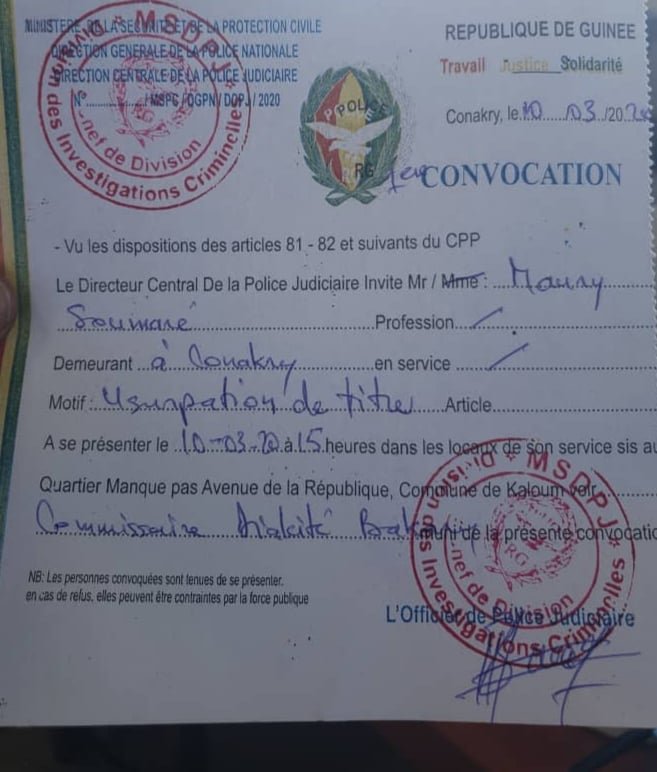 MINISTERE DE LA SECURITE ET DE LA PROTECTION CIVILE
DIRECTION GENERALE DE LA POLICE NATIONALE
DIRECTION CENTRALE DE LA POLICE JUDICIAIRE
N°............../MSPC/DGPN/DCPJ/2020
MSDPJ
Division des Investigations Criminelles
Chef de Division
REPUBLIQUE DE GUINEE
Travail Justice Solidarité
Conakry, le 10 /03 /2020
POLICE
RG
1ere CONVOCATION
- Vu les dispositions des articles 81 - 82 et suivants du CPP
Le Directeur Central De la Police Judiciaire Invite Mr / Mme :
Soumaré Profession /
Demeurant à Conakry en service /
Motif : Usurpation de titre Article
A se présenter le 10-03-20 à 15 heures dans les locaux de son service sis au
Quartier Manque pas Avenue de la République, Commune de Kaloum voir
Commissaire muni de la présente convocatio
NB: Les personnes convoquées sont tenues de se présenter.
en cas de refus, elles peuvent être contraintes par la force publique
L'Officier de Police Judiciaire
MSDPJ
Division des Investigations Criminelles
Chef de Division
RG